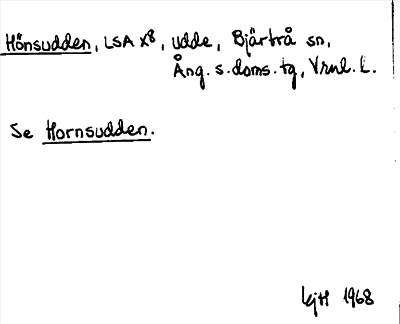 Hönsudden, LSA X8, udde, Bjärtrå sn,
Ång. s. doms. tg, Vrnl. L.
Se Hornsudden.
1968